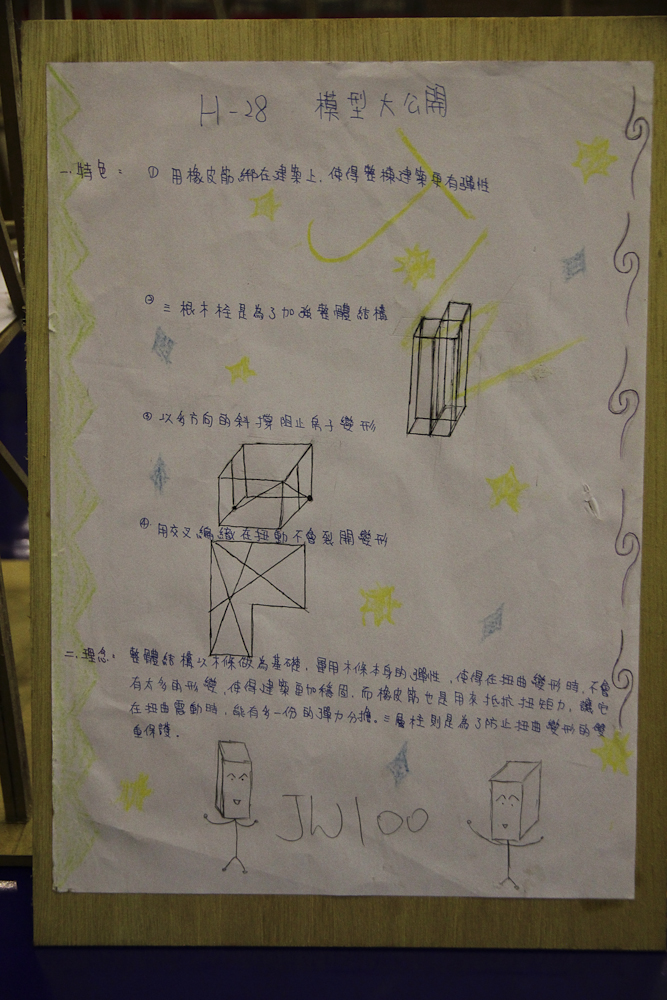 H-28 模型大公開
一.特色：① 用橡皮筋綁在建築上，使得整棟建築更有彈性
② 三根木栓是為了加強整體結構
③ 以多方向的斜撐阻止房子變形
④ 用交叉編織在扭動不會裂開變形
二.理念：整體結構以木條做為基礎，運用木條本身的彈性，使得在扭曲變形時，不會
有太多的形變，使得建築更加穩固，而橡皮筋也是用來抵抗扭矩力，讓它
在扭曲震動時，能有多一份的彈力分擔。三層柱則是為了防止扭曲變形的雙
重保護。
JW100